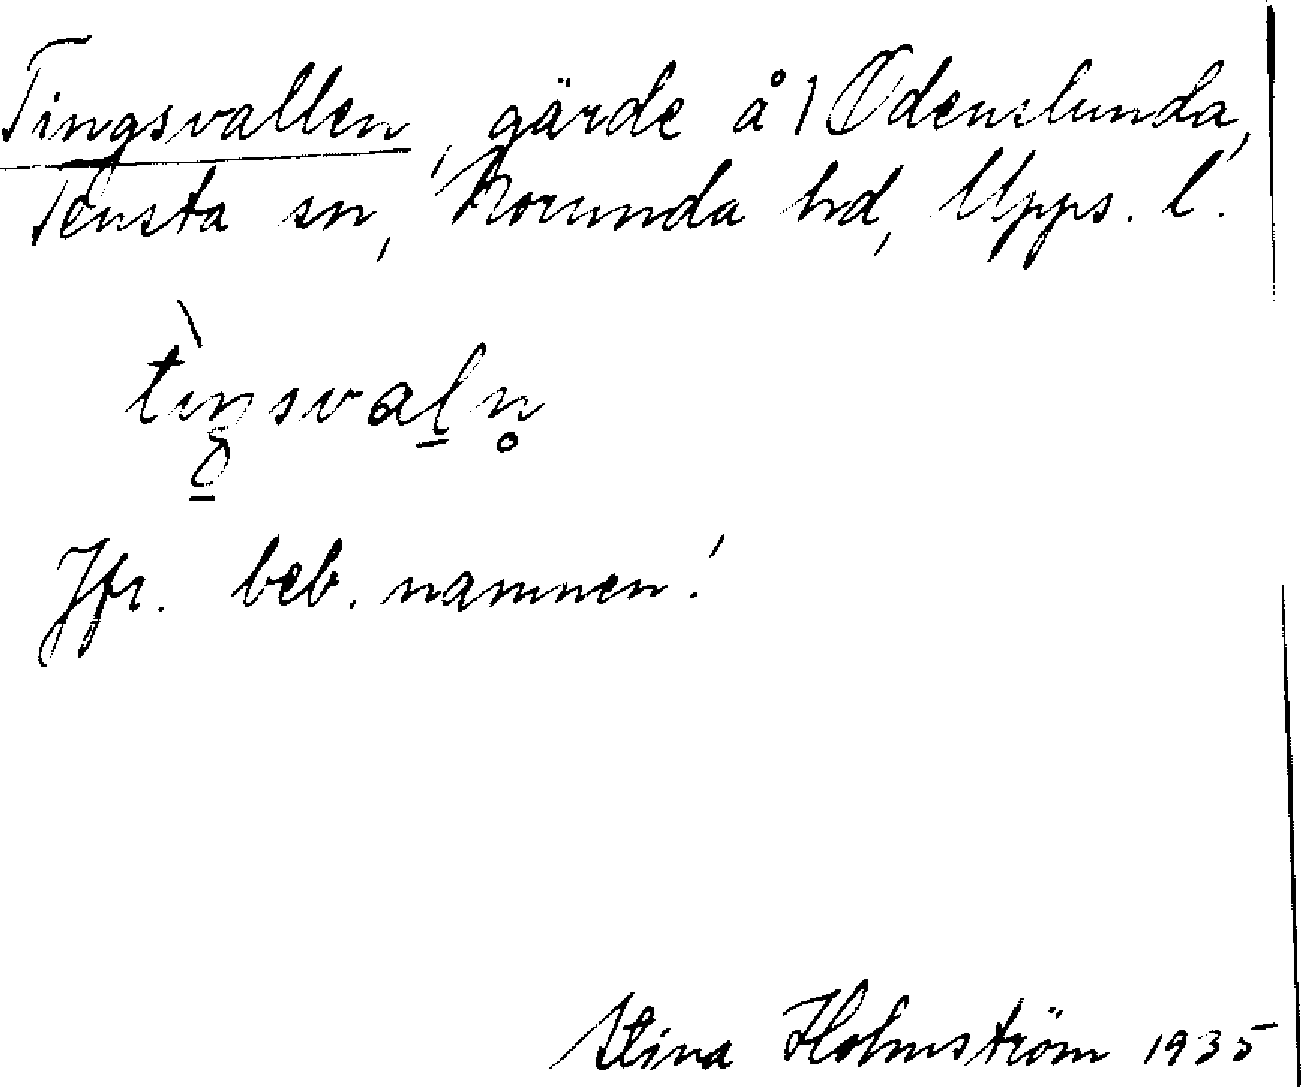 Tingsvallen, gärde å 1 Odenslunda,
Tensta sn, Norunda hd, Upps. l.
tìŋsvaḻn̥
Jfr. beb. namnen!
Stina Holmström 1935